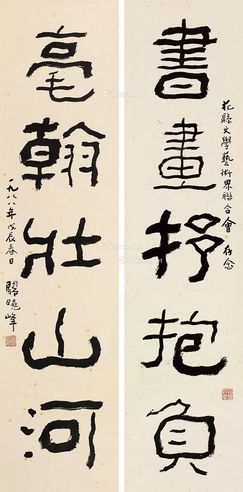 書畫抒抱負
花縣文學藝術界聯合會 存念
毫翰壯山河
一九八八年戊辰春日
駱曉峰